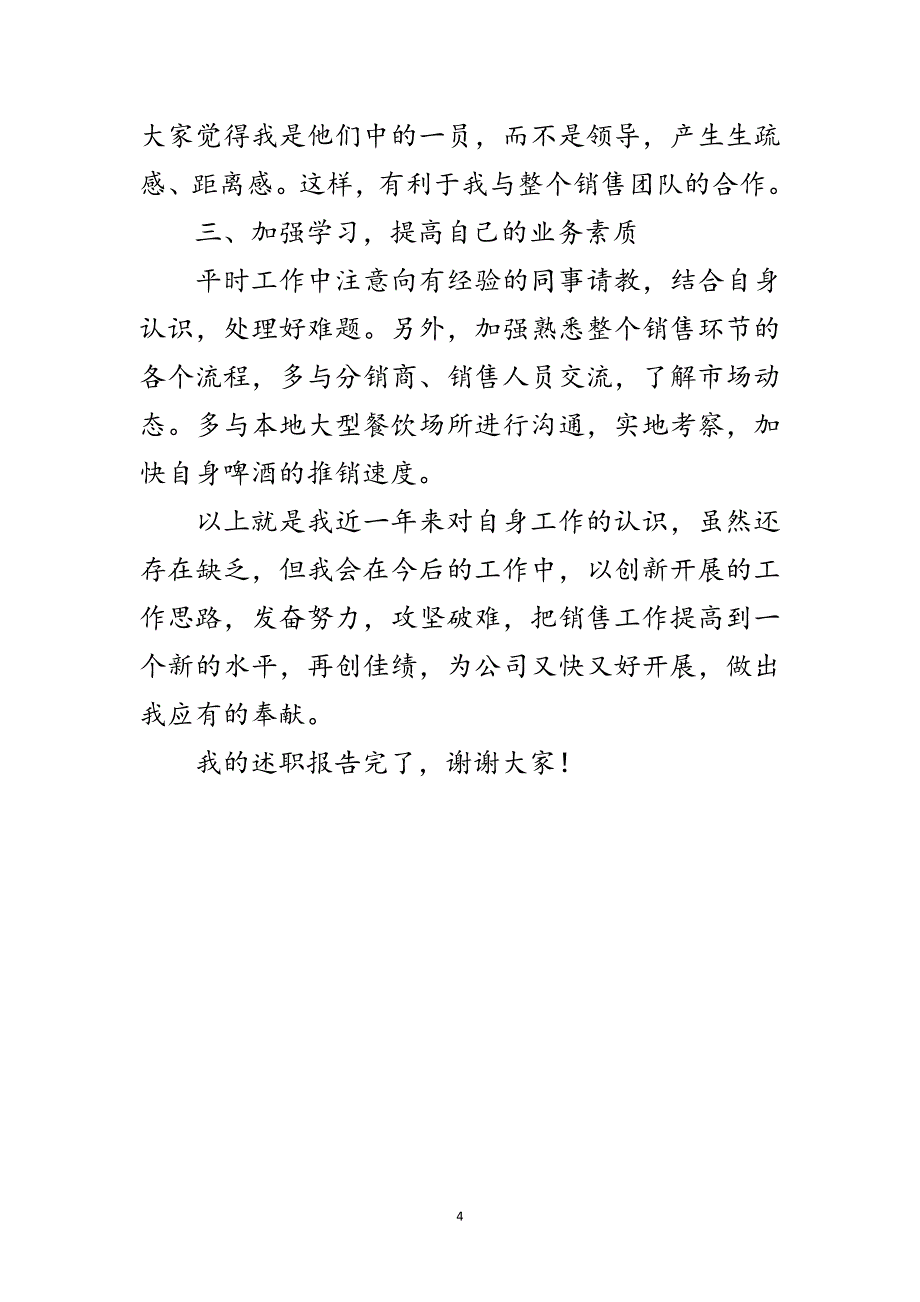 大家觉得我是他们中的一员，而不是领导，产生生疏
感、距离感。这样，有利于我与整个销售团队的合作。
三、加强学习，提高自己的业务素质
平时工作中注意向有经验的同事请教，结合自身
认识，处理好难题。另外，加强熟悉整个销售环节的
各个流程，多与分销商、销售人员交流，了解市场动
态。多与本地大型餐饮场所进行沟通，实地考察，加
快自身啤酒的推销速度。
以上就是我近一年来对自身工作的认识，虽然还
存在缺乏，但我会在今后的工作中，以创新开展的工
作思路，发奋努力，攻坚破难，把销售工作提高到一
个新的水平，再创佳绩，为公司又快又好开展，做出
我应有的奉献。
我的述职报告完了，谢谢大家！
4